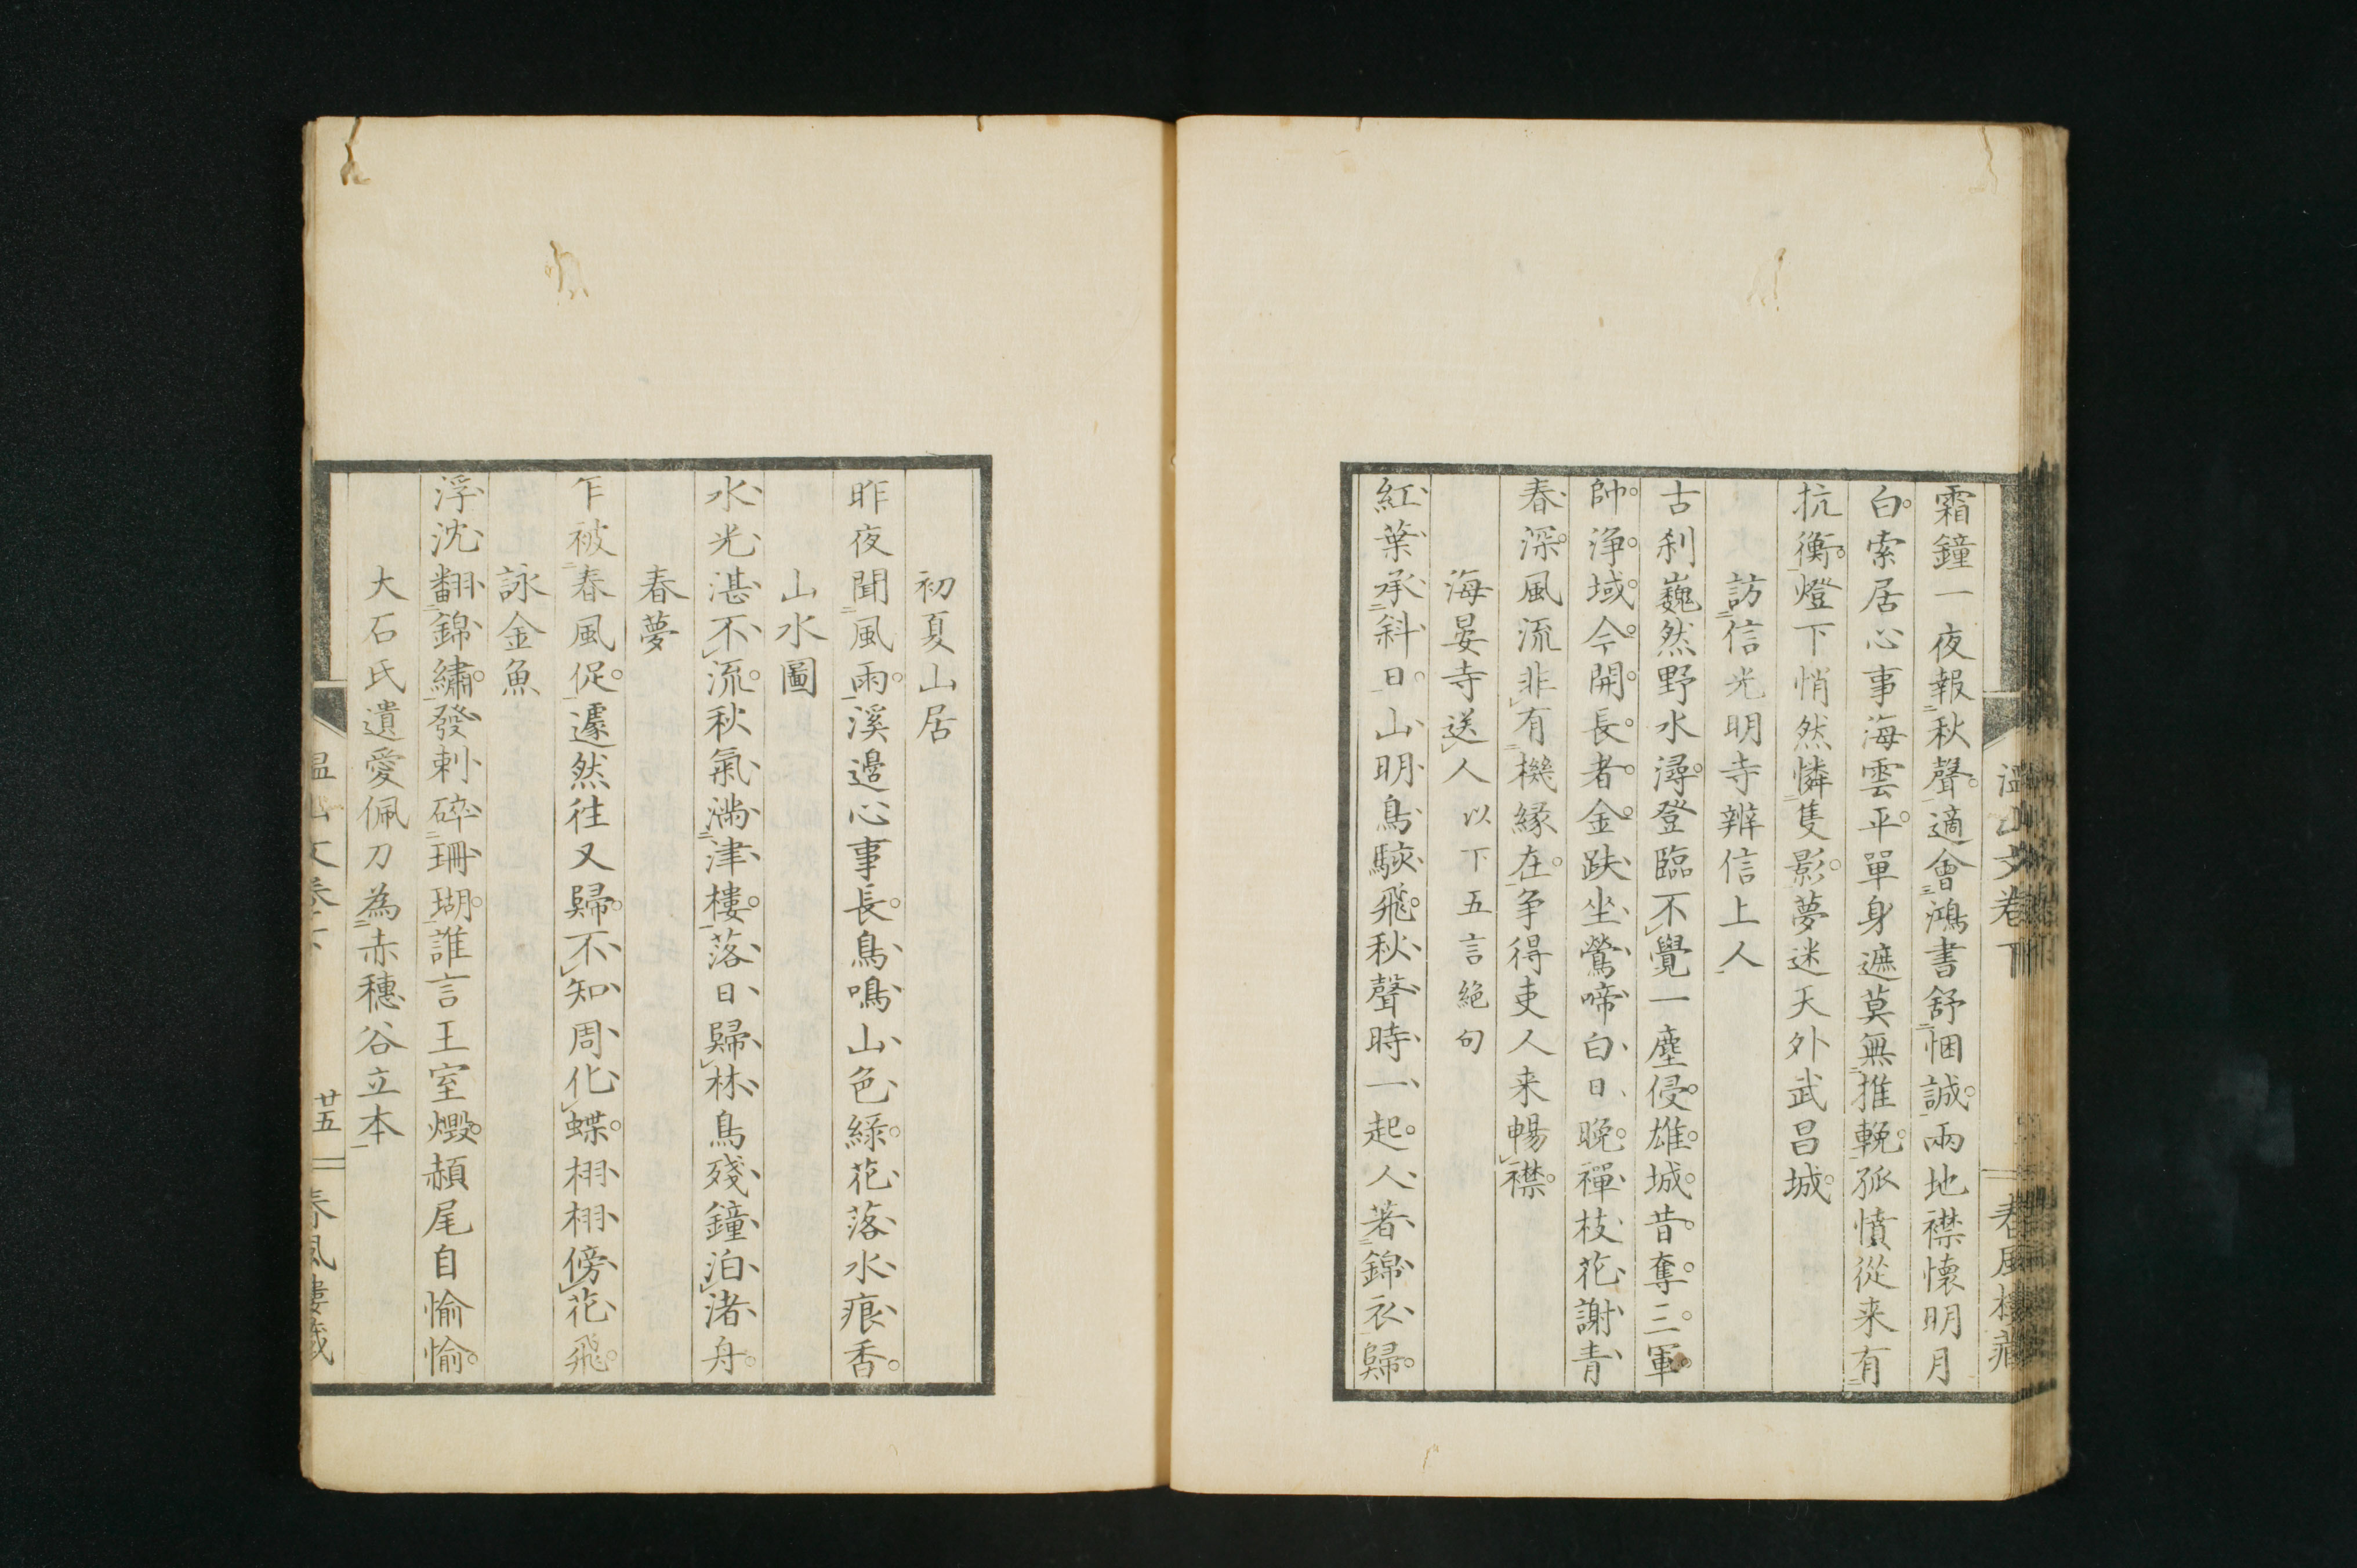 霜鐘一夜報秋聲適會鴻書舒悃誠兩地襟懐明月
白索居心事海雲平單身遮莫無推輓孤憤從来有
抗衡燈下悄然憐隻影夢迷天外武昌城
訪信光明寺辨信上人
古刹巍然野水潯登臨不覺一塵侵雄城昔奪三軍
帥浄域今開長者金趺坐鶯啼白日晩禪枝花謝青
春深風流非有機縁在争得吏人来暢襟
海晏寺送人 以下五言絶句
紅葉承斜日山明鳥駭飛秋聲時一起人著錦衣歸
初夏山居
昨夜聞風雨溪邉心事長鳥鳴山色緑花落水痕香
山水圖
水光湛不流秋氣満津樓落日歸林鳥殘鐘泊渚舟
春夢
乍被春風促遽然往又歸不知周化蝶栩栩傍花飛
詠金魚
浮沈翻錦繡發刺碎珊瑚誰言王室燬頳尾自愉愉
大石氏遺愛佩刀為赤穂谷立本
温山文卷下
廿五
春風樓蔵